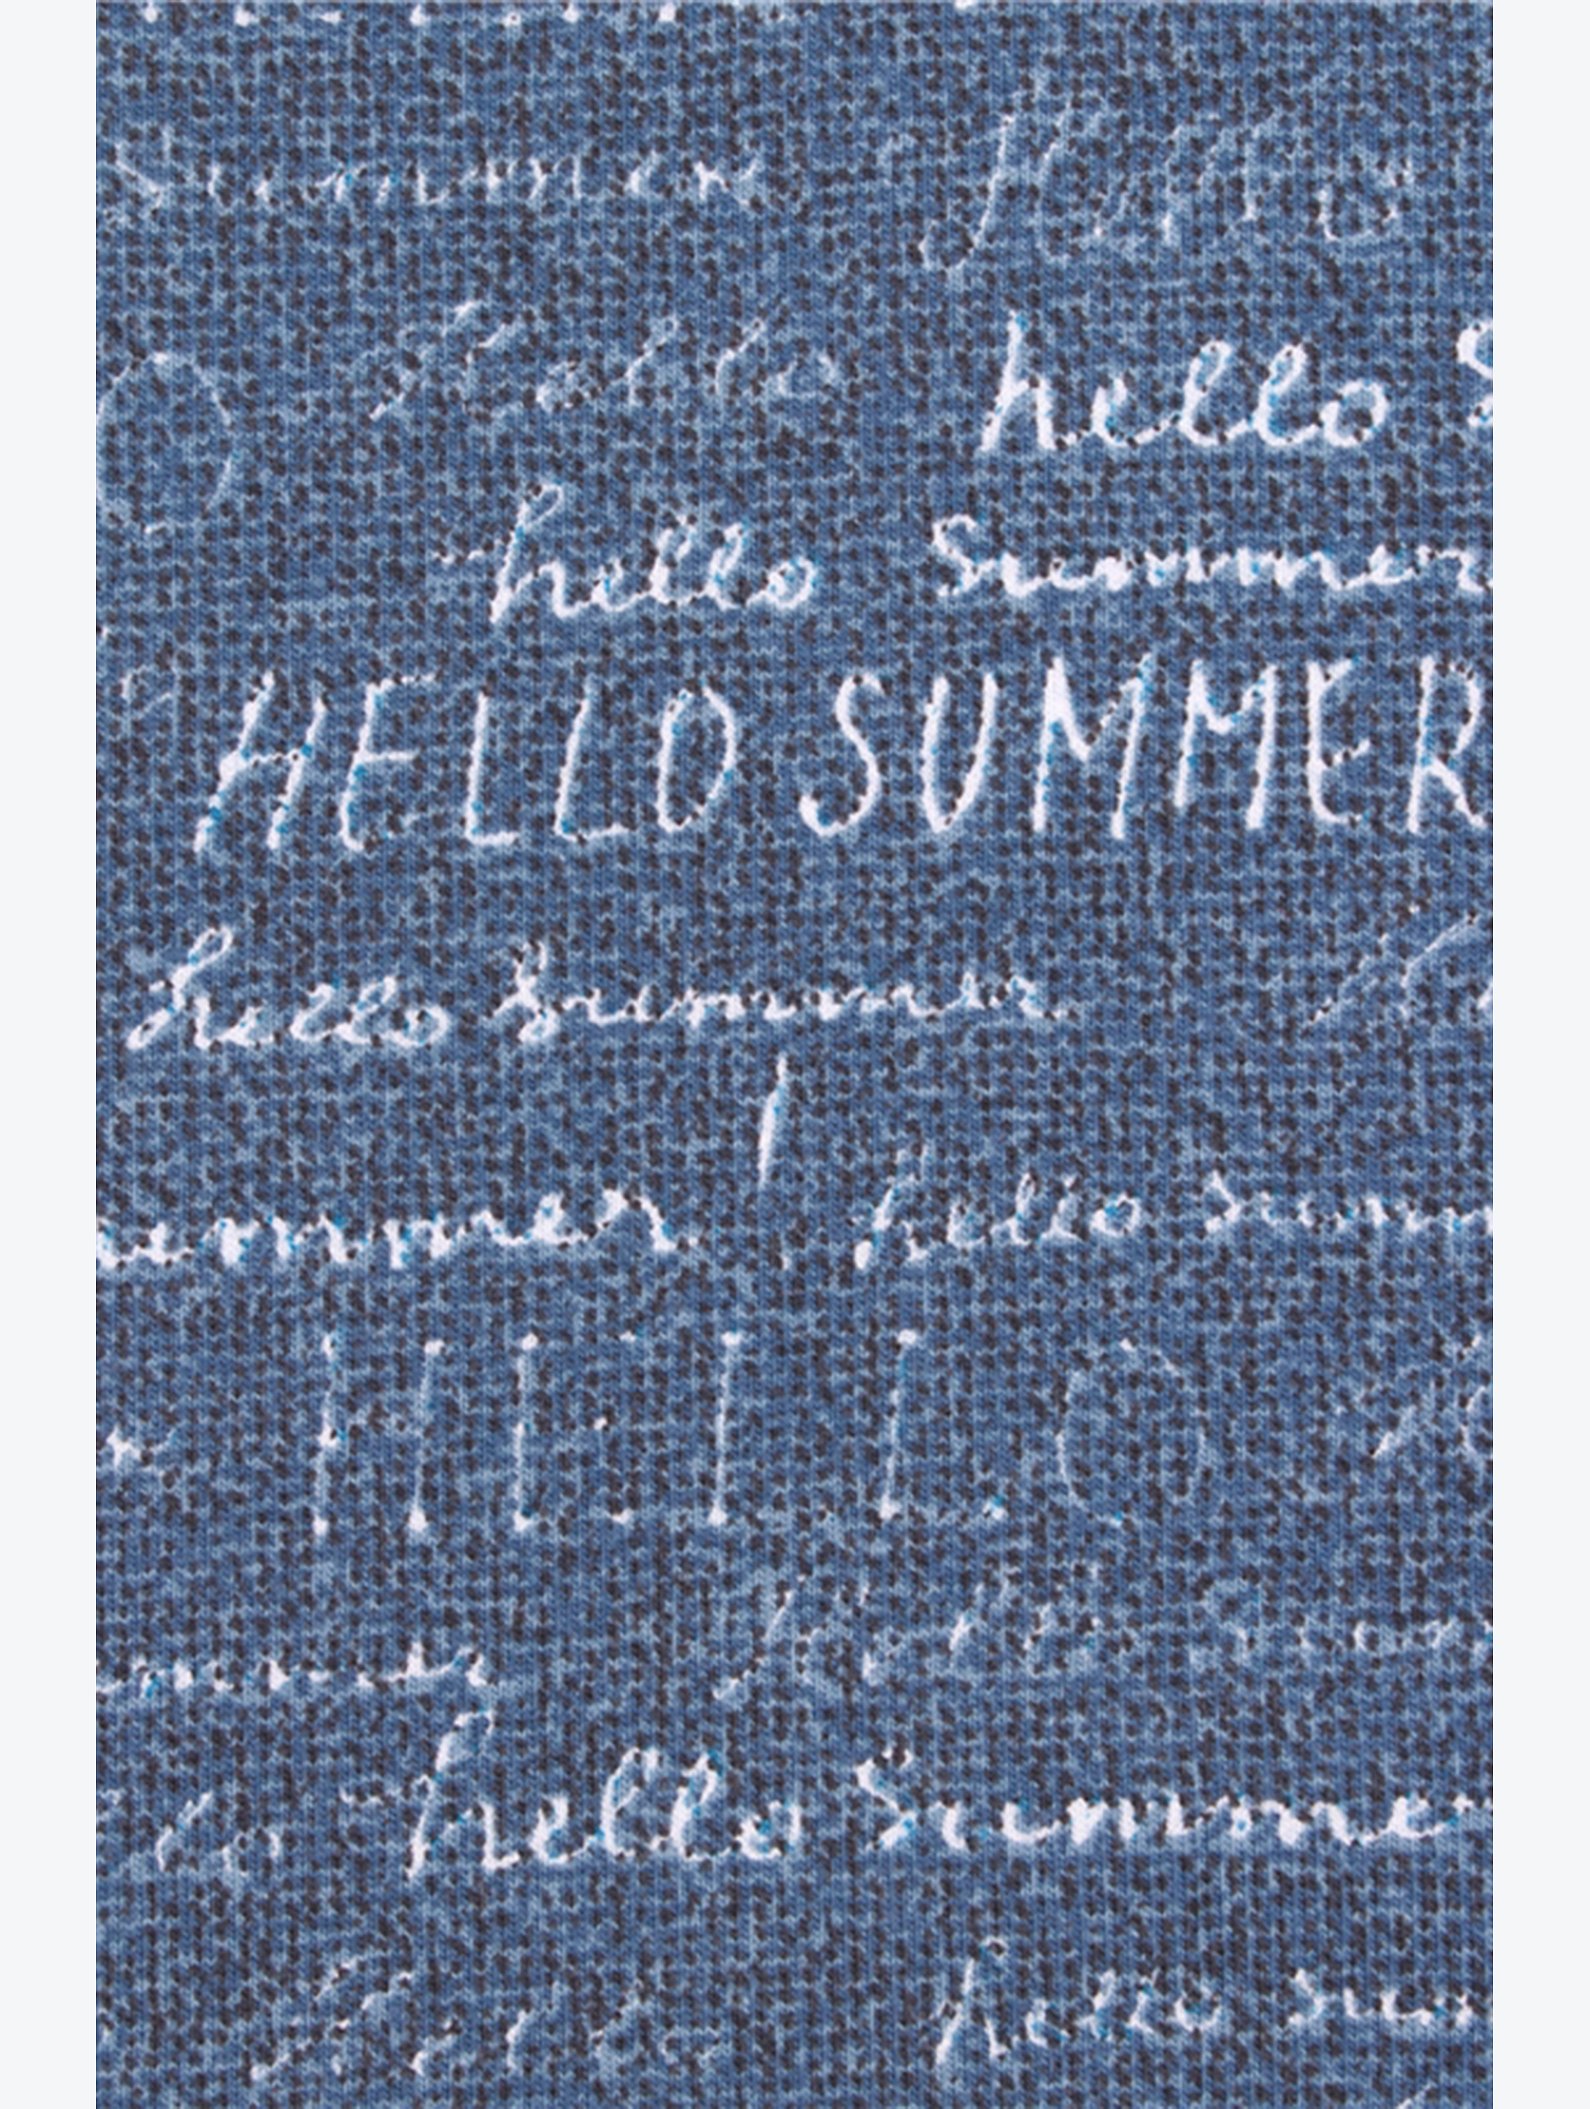 Summer Hello
Hello hello S
hello Summer
HELLO SUMMER
hello Summer
ummer hello sum
HELLO
hello
hello Summe
hello sum